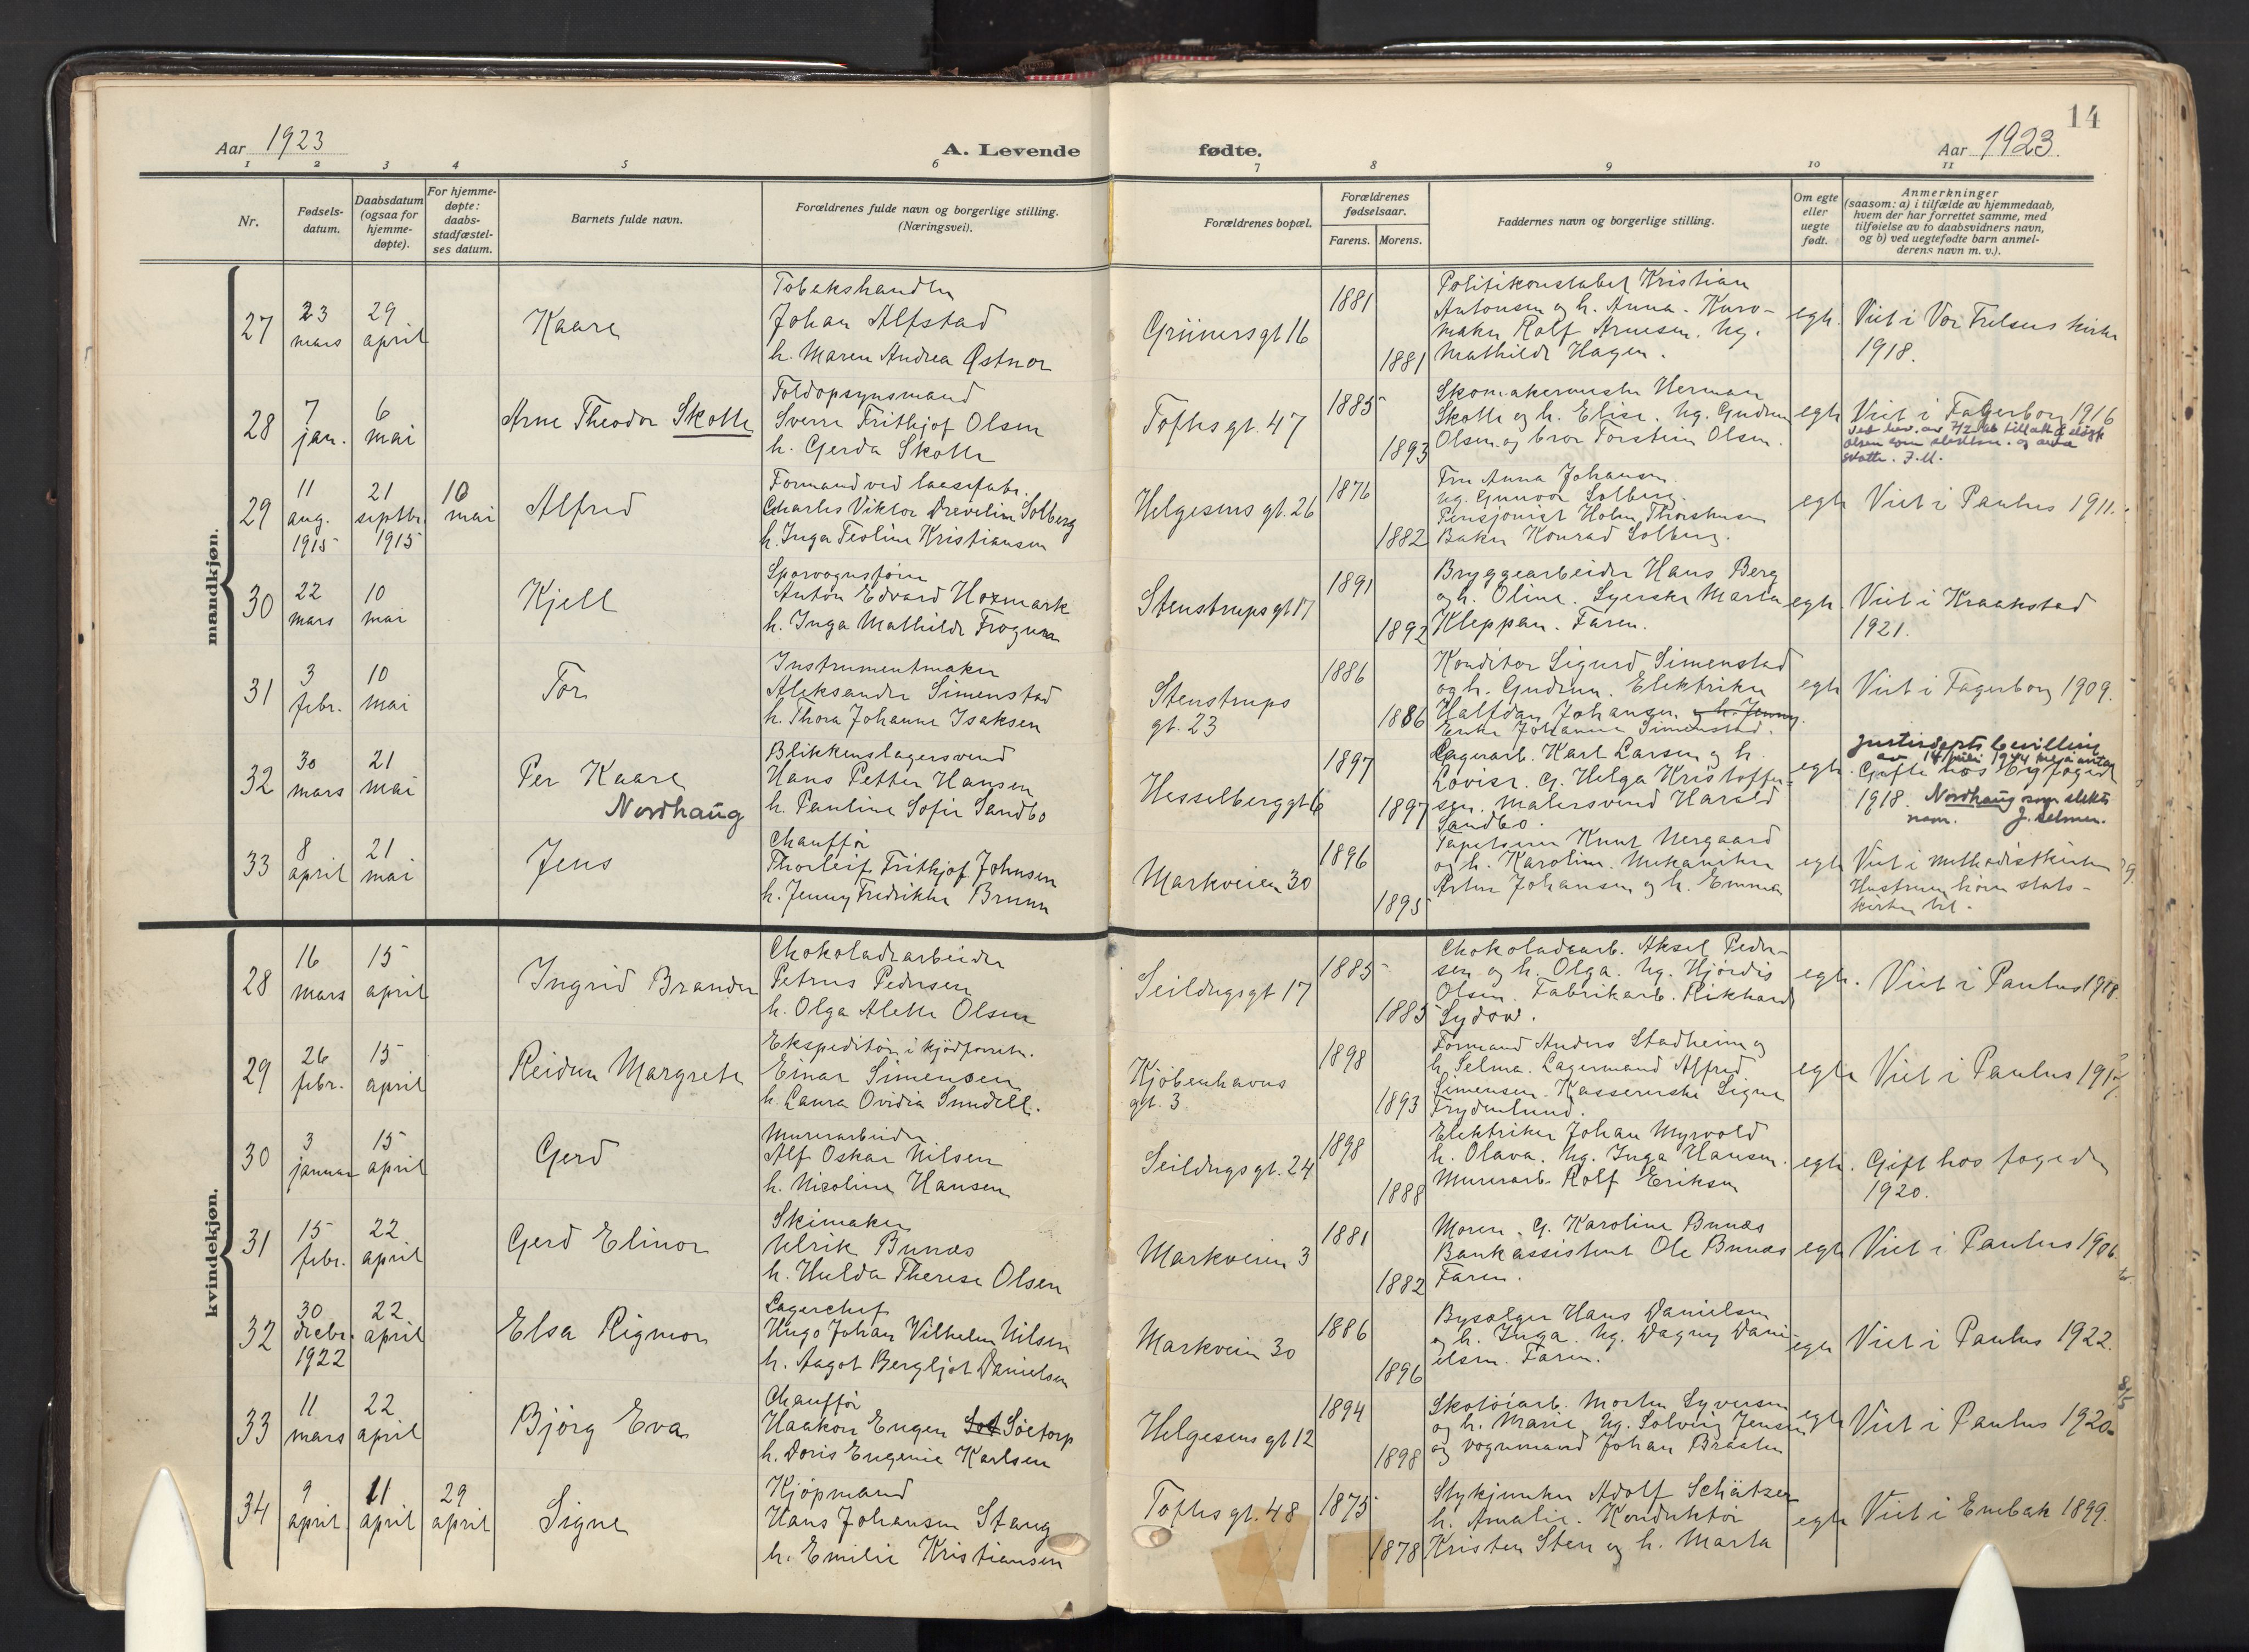 14
Aar 1923
A. Levende
fødte.
Aar 1923.
1 2 3 4 5 6 7 8 9 10 11
Nr.
Fødsels-
datum.
Daabsdatum
(ogsaa for
hjemme-
døpte).
For hjemme-
døpte:
daabs-
stadfæstel-
ses datum.
Barnets fulde navn.
Forældrenes fulde navn og borgerlige stilling.
(Næringsvei).
Forældrenes bopæl.
Forældrenes
fødselsaar.
Farens. Morens.
Faddernes navn og borgerlige stilling.
Om egte
eller
uegte
født.
Anmerkninger
(saasom: a) i tilfælde av hjemmedaab,
hvem der har forrettet samme, med
tilføielse av to daabsvidners navn,
og b) ved uegtefødte barn anmel-
derens navn m. v.).
mandkjøn.
27
23
mars
29
april
Kaare
Tobakshandler
Johan Alfstad
h. Maren Andrea Østnor
Grünersgt 16
1881
1881
Politikonstabel Kristian
Antonsen og h. Anna. Kurv-
maker Rolf Arnesen. Ug.
Mathilde Hagen.
egte.
Viet i Vor Frelsers kirke
1918.
28
7
jan.
6
mai
Arne Theodor Skotte
Toldopsynsmand
Sverre Frithjof Olsen
h. Gerda Skotte
Toftesgt. 47
1885
1893
Skomakermester Herman
Skotte og h. Elise. Ug. Gudrun
Olsen og bror Torstein Olsen.
egte
Viet i Fagerborg 1916
ved bev. av 7/2 tillatt å sløyfe
Olsen som slektsn. og anta
Skotte. J.U.
29
11
aug.
1915
21
septbr.
1915
10
mai
Alfred
Formand ved laasefabr.
Charles Viktor Drevelin Solberg
h. Inga Teoline Kristiansen
Helgesens gt. 26
1876
1882
Fru Anna Johansen
Ug. Gunvor Solberg.
Pensjonist Holm Thorshusen
Baker Konrad Solberg.
egte
Viet i Paulus 1911.
30
22
mars
10
mai
Kjell
Sporvognsfører
Anton Edvard Hozmark
h. Inga Mathilde Frogner
Stenstrupsgt 17
1891
1892
Bryggearbeider Hans Berg
og h. Oline. Syerske Marta
Kleppan. Faren.
egte.
Viet i Kraakstad
1921.
31
3
febr.
10
mai
Tor
Instrumentmaker
Aleksander Simenstad
h. Thora Johanne Isaksen
Stenstrups
gt. 23
1886
1886
Konditor Sigurd Simenstad
og h. Gudrun. Elektriker
Halfdan Johansen og h. Jenny.
Enke Johanne Simenstad.
egte
Viet i Fagerborg 1909.
32
30
mars
21
mai
Per Kaare
Nordhaug
Blikkenslagersvend
Hans Petter Hansen
h. Pauline Sofie Sandbo
Hesselberggt 6
1897
1897
Lagerarb. Karl Larsen og h.
Lovise. G. Helga Kristoffer-
sen. Malersvend Harald
Sandbo.
egte.
Justisdepts bevilling
av 14 juli 1944 til å anta
Gifte hos byfoged
1918. Nordhaug som slekts
navn. J. Selmer.
33
8
april
21
mai
Jens
Chauffør
Thorleif Frithjof Johnsen
h. Jenny Fredrikke Bruun
Markveien 30
1896
1895
Tapetserer Knut Nergaard
og h. Karoline. Mekaniker
Artur Johansen og h. Emma
egte
Viet i Methodistkirken
Hustruen hører stats-
kirken til.
kvindekjøn.
28
16
mars
15
april
Ingrid Brander
Chokoladearbeider
Petrus Pedersen
h. Olga Alette Olsen
Seildugsgt 17
1885
1885
Chokoladearb. Aksel Peder-
sen og h. Olga. Ug. Hjørdis
Olsen. Fabrikarb. Rikhard
Sydow.
egte.
Viet i Paulus 1918.
29
26
febr.
15
april
Reidun Margrete
Ekspeditør i kjødforretn.
Einar Simensen
h. Laura Ovidia Sundell.
Kjøbenhavns
gt. 3
1898
1893
Formand Anders Stadheim og
h. Selma. Lagermand Alfred
Simensen. Kassererske Signe
Frydenlund.
egte
Viet i Paulus
30
3
januar
15
april
Gerd
Murerarbeider
Alf Oskar Nilsen
h. Nicoline Hansen
Seildugsgt. 24
1898
1888
Elektriker Johan Myrvold
h. Olava. Ug. Inga Hansen.
Murerarb. Rolf Eriksen
egte.
Gift hos fogeden
1920.
31
15
febr.
22
april
Gerd Elinor
Skimaker
Ulrik Bunæs
h. Hulda Therese Olsen
Markveien 3
1881
1882
Moren. G. Karoline Bunæs
Bankassistent Ole Bunæs
Faren.
egte
Viet i Paulus 1906.
32
30
decbr.
1922
22
april
Elsa Rigmor
Lagerchef
Hugo Johan Vilhelm Nilsen
h. Aagot Bergljot Danielsen
Markveien 30
1886
1896
Bysælger Hans Danielsen
og h. Inga. Ug. Dagny Dani-
elsen. Faren.
egte
Viet i Paulus 1922.
33
11
mars
22
april
Bjørg Eva
Chauffør
Haakon Eugen Sot Söetorp
h. Doris Eugenie Karlsen
Helgesens gt 12
1894
1898
Skotöiarb. Morten Syversen
og h. Marie. Ug. Solveig Jensen
og vognmand Johan Bråsten
egte
Viet i Paulus 1920.
8/5
34
9
april
11
april
29
april
Signe
Kjøpmand
Hans Johansen Stang
h. Emilie Kristiansen
Toftesgt. 48
1875
1878
Stykjunker Adolf Schätzer
h. Amalie. Konduktør
Kristen Sten og h. Marta
egte
Viet i Enebak 1899.